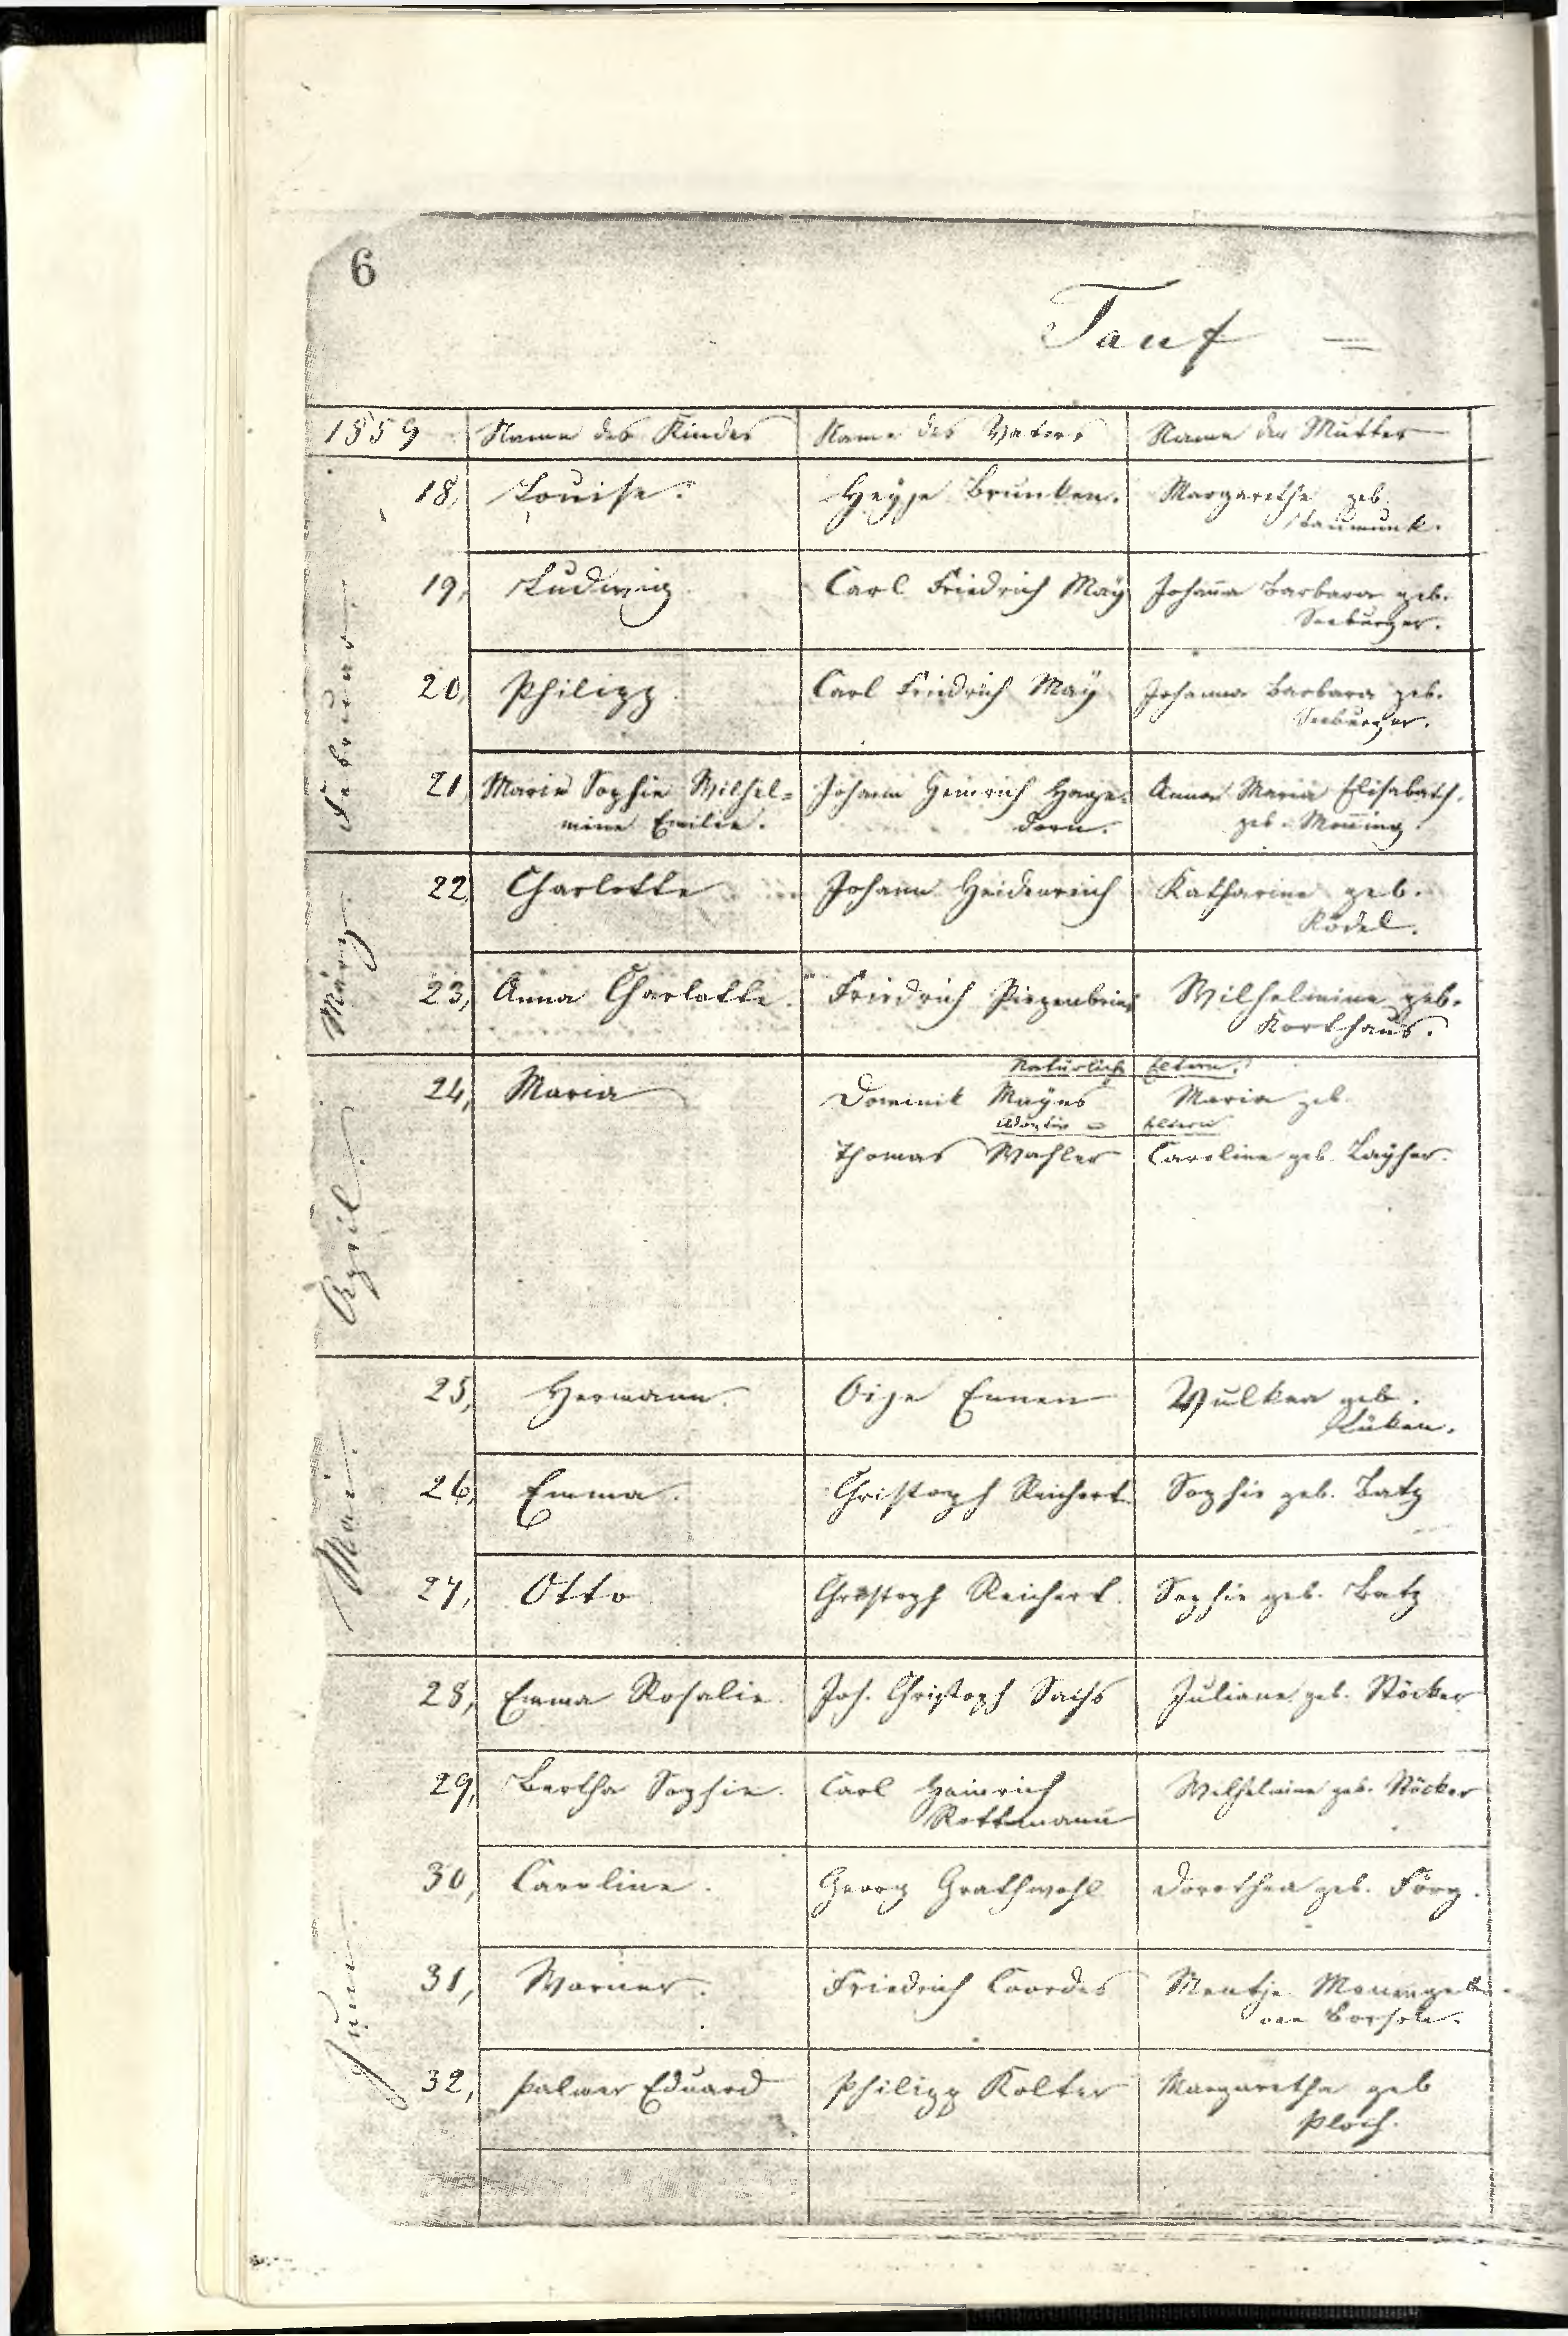 6
Tauf =
1859 Name des Kindes Name des Vaters Name der Mutter
Februar
18, Louise. Heyje Brunken. Margarethe geb.
19, Ludwig. Carl Friedrich Maÿ Johaña Barbara geb.
Seeburger.
20, Philipp. Carl Friedrich Maÿ Johanna Barbara geb.
Seeburger.
21, Marie Sophie Wilhel= Johann Heinrich Hage= Anna Maria Elisabeth,
mine Emilie. dorn. geb. Meñing.
März
22, Charlotte Johann Heidenreich Katharine geb.
Rödel.
23, Anna Charlotte. Friedrich Piepenbrink Wilhelmine geb.
Korthaus.
April.
Natürliche Eltern.
24, Maria Dominik Maÿus Maria geb.
Adoptiv = Eltern
Thomas Wahler Caroline geb. Laÿher.
Mai.
25, Hermann. Oije Ennen Wulkea geb.
Lüken.
26, Emma. Christoph Reichert. Sophie geb. Batz
27, Otto Christoph Reichert. Sophie geb. Batz
Juni.
28, Emma Rosalie. Joh. Christoph Sachs Juliane geb. Stöcker
29, Bertha Sophie. Carl Heinrich Wilhelmine geb. Stöcker
Rottmann
30, Caroline. Georg Grathwohl Dorothea geb. Förg.
31, Warner. Friedrich Coordes Mentje geb.
von Borssele.
32, Palmer Eduard Philipp Kolter Margaretha geb
Ploch.